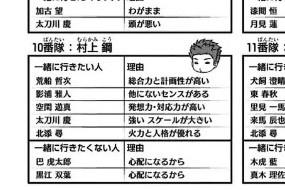 加古 望 わがまま
太刀川 慶 頭が悪い
ばんたい むらかみ こう
10番隊：村上 鋼
一緒に行きたい人 理由
荒船 哲次 総合力と計画性が高い
影浦 雅人 他にないセンスがある
空閑 遊真 発想力・対応力が高い
太刀川 慶 強い スケールが大きい
北添 尋 火力と人格が優れる
一緒に行きたくない人 理由
巴 虎太郎 心配になるから
黒江 双葉 心配になるから
漆間 恒
月見 蓮
ばんたい
11番隊
一緒に行
犬飼 澄晴
東 春秋
里見 一馬
来馬 辰也
北添 尋
一緒に行
木虎 藍
真木 理佐